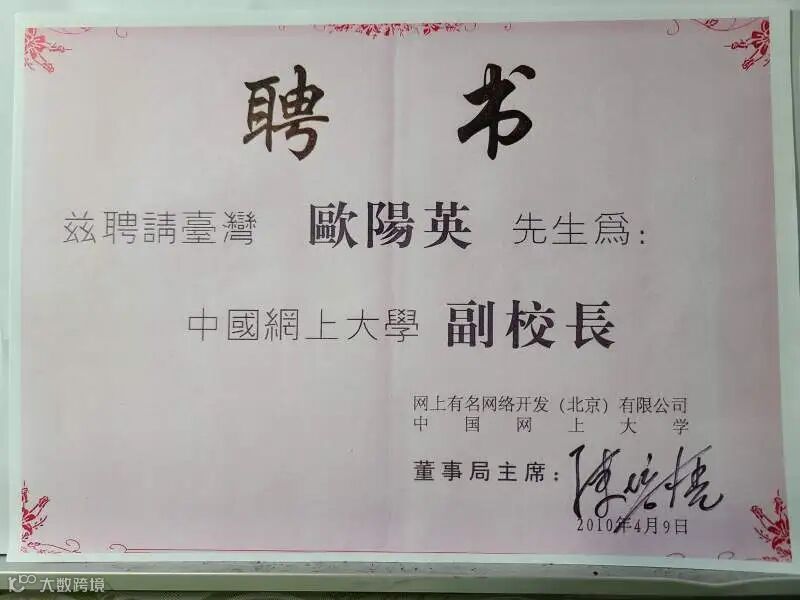 聘书
兹聘請臺灣 歐陽英 先生爲:
中國網上大學 副校長
网上有名网络开发（北京）有限公司
中国网上大学
董事局主席:
2010年4月9日
大数跨境